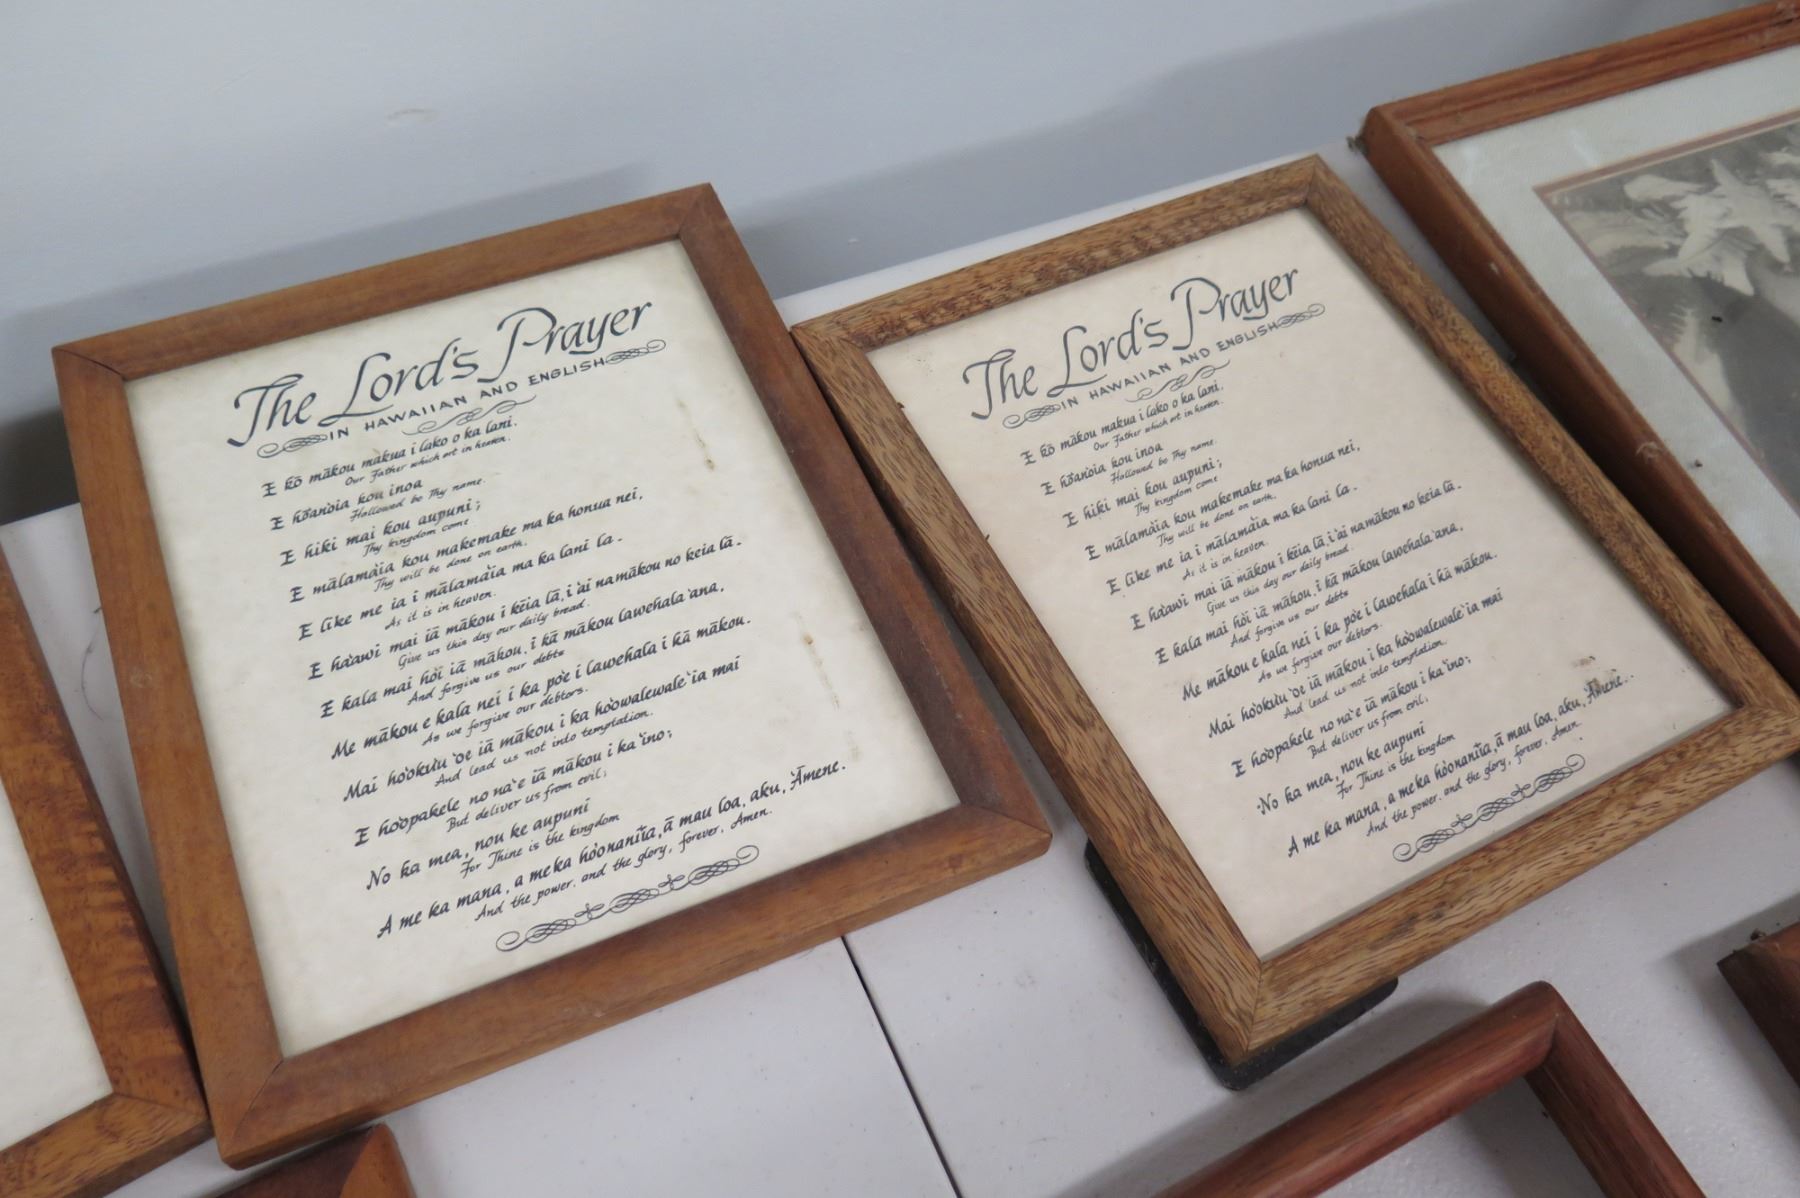 The Lord's Prayer
IN HAWAIIAN AND ENGLISH
E kō mākou makua i loko o ka lani.
Our Father which art in heaven.
E hōʻanoʻia kou inoa
Hallowed be Thy name.
E hiki mai kou aupuni;
Thy kingdom come
E mālamaʻia kou makemake ma ka honua nei,
Thy will be done on earth,
E like me ia i mālamaʻia ma ka lani la.
As it is in heaven.
E haʻawi mai iā mākou i kēia lā, i ʻai na mākou no keia lā.
Give us this day our daily bread.
E kala mai hoʻi iā mākou, i kā mākou lawehala ʻana,
And forgive us our debts
Me mākou e kala nei i ka poʻe i lawehala i kā mākou.
As we forgive our debtors.
Mai hoʻokuʻu ʻoe iā mākou i ka hoʻowalewale ʻia mai
And lead us not into temptation.
E hoʻopakele no naʻe iā mākou i ka ʻino;
But deliver us from evil;
No ka mea, nou ke aupuni
For Thine is the kingdom
A me ka mana, a me ka hoʻonaniʻia, ā mau loa, aku, ʻĀmene.
And the power, and the glory, forever, Amen.
The Lord's Prayer
IN HAWAIIAN AND ENGLISH
E kō mākou makua i loko o ka lani.
Our Father which art in heaven.
E hōʻanoʻia kou inoa
Hallowed be Thy name.
E hiki mai kou aupuni;
Thy kingdom come
E mālamaʻia kou makemake ma ka honua nei,
Thy will be done on earth,
E like me ia i mālamaʻia ma ka lani la.
As it is in heaven.
E haʻawi mai iā mākou i kēia lā, i ʻai na mākou no keia lā.
Give us this day our daily bread.
E kala mai hoʻi iā mākou, i kā mākou lawehala ʻana,
And forgive us our debts
Me mākou e kala nei i ka poʻe i lawehala i kā mākou.
As we forgive our debtors.
Mai hoʻokuʻu ʻoe iā mākou i ka hoʻowalewale ʻia mai
And lead us not into temptation.
E hoʻopakele no naʻe iā mākou i ka ʻino;
But deliver us from evil;
No ka mea, nou ke aupuni
For Thine is the kingdom
A me ka mana, a me ka hoʻonaniʻia, ā mau loa, aku, ʻĀmene.
And the power, and the glory, forever, Amen.